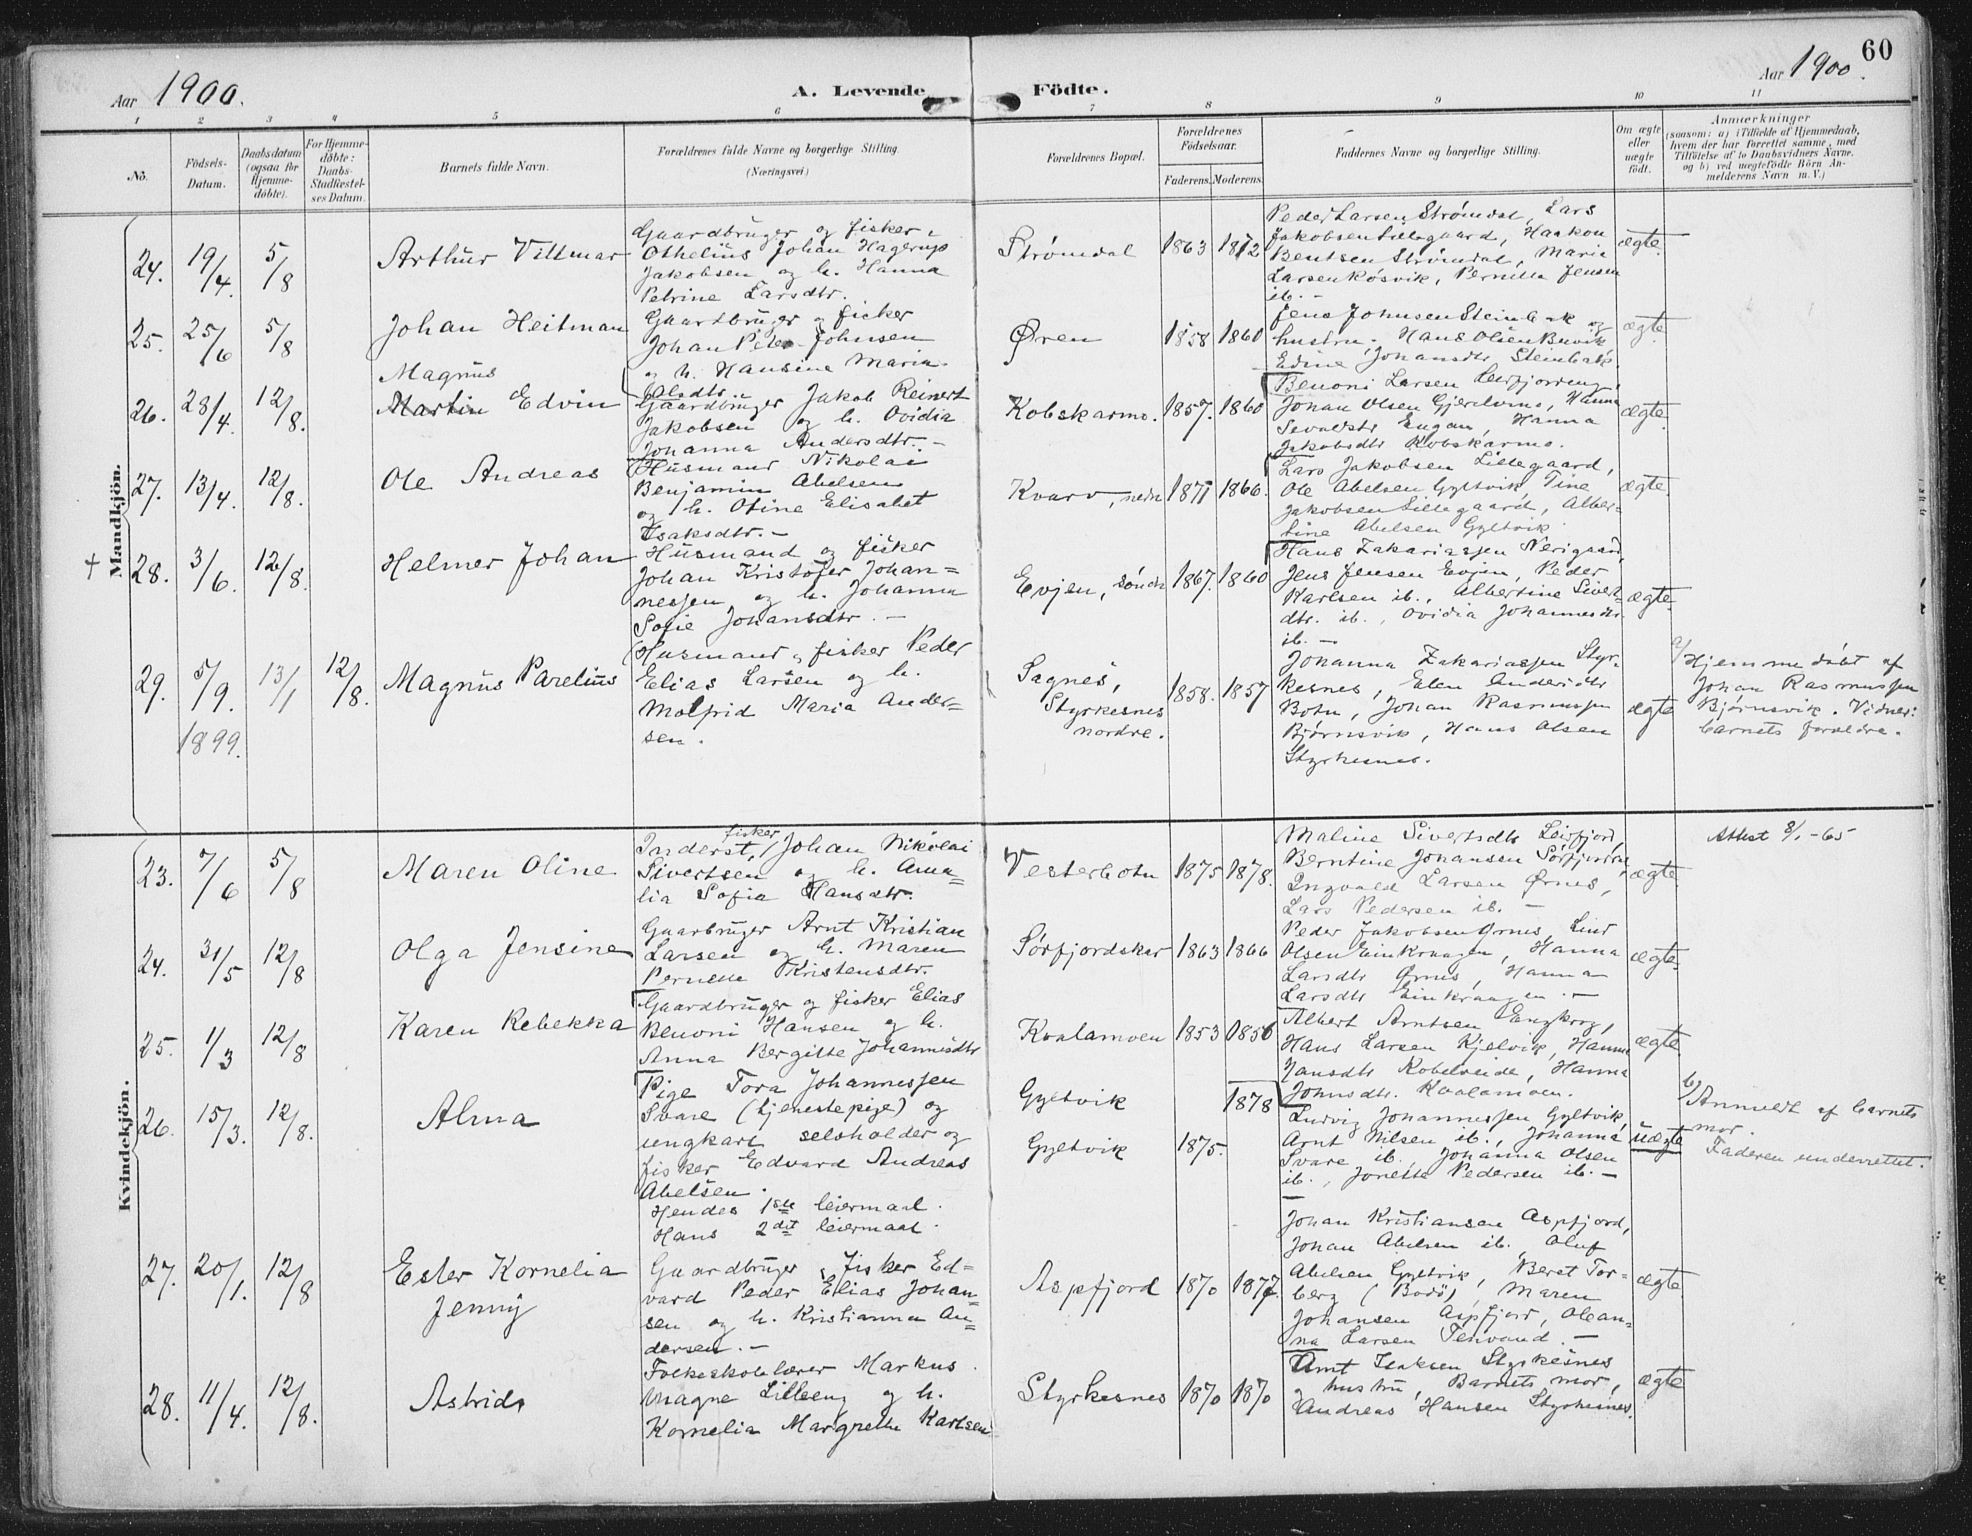 60
Aar 1900.
A. Levende Födte.
Aar 1900.
1 2 3 4 5 6 7 8 9 10 11
No.
Födsels-Datum.
Daabsdatum (ogsaa for Hjemmedöbte).
For Hjemmedöbte: Daabs-Stadfæstelses Datum.
Barnets fulde Navn.
Forældrenes fulde Navne og borgerlige Stilling.
(Næringsvei)
Forældrenes Bopæl.
Forældrenes Födselsaar.
Faderens. Moderens.
Faddernes Navne og borgerlige Stilling.
Om ægte eller uægte födt.
Anmærkninger
(saasom: a) i Tilfælde af Hjemmedaab, hvem der har forrettet samme, med Tilföielse af to Daabsvidners Navne, og b) ved uægtefödte Börn Anmelderens Navn m. V.)
Mandkjön.
24. 19/4. 5/8 Arthur Vittmar
Gaardbruger og fisker
Othelius Johan Hagerup
Jakobsen og h. Hanna
Petrine Larsdtr.
Strømdal 1863 1872
Peder Larsen Strømdal, Lars
Jakobsen Lillegaard, Haakon
Bentsen Strømdal, Marie
Larsen Røsvik, Pernille Jensen
ib. –
ægte.
25. 25/6 5/8 Johan Heitman
Magnus
Gaardbruger og fisker
Johan Peter Johnsen
og h. Hansine Maria
Olsdtr.
Øren 1858 1860
Jens Johnsen Steinbak og
hustru, Hans Olsen Buvik,
Edine Johansdtr. Steinbak.
ægte.
26. 28/4. 12/8. Martin Edvin
Gaardbruger Jakob Reinert
Jakobsen og h. Ovidia
Johanna Andersdtr. –
Kobskarmo. 1857. 1860
Benoni Larsen Leirfjorden,
Johan Olsen Gjerelvmo, Hanna
Sevaldstr Engan, Hanna
Jakobsdtr Kobskarmo.
ægte.
27. 13/4. 12/8. Ole Andreas
Husmand Nikolai
Benjamin Abelsen
og h. Otine Elisabet
Isaksdtr. –
Kvarv, nedre 1871 1866.
Lars Jakobsen Lillegaard,
Ole Abelsen Gyltvik, Tine
Jakobsen Lillegaard, Alber-
tine Abelsen Gyltvik
ægte.
+ 28. 3/6. 12/8. Helmer Johan
Husmand og fisker
Johan Kristofer Johan=
nessen og h. Johanna
Sofie Johansdtr. –
Evjen, søndre 1867. 1860
Hans Zakariassen Nerigaard,
Jens Jensen Evjen, Peder
Karlsen ib., Albertine Sivert-
dtr. ib., Ovidia Johannesdtr.
ib. –
ægte.
29. 5/9. 1899. 13/1 12/8. Magnus Parelius
Husmand og fisker Peder
Elias Larsen og h.
Molfrid Maria Ander=
sen.
Sagnes,
Styrkesnes
nordre.
1858. 1857
Johanna Zakariassen Styr-
kesnes, Elen Andersdtr
Botn, Johan Rasmussen
Bjørnsvik, Hans Olsen
Styrkesnes.
ægte
a/ Hjemmedøbt af
Johan Rasmussen
Bjørnsvik. Vidner:
barnets forældre.
Kvindekjön.
23. 7/6 5/8 Maren Oline
fisker
Inderst, / Johan Nikolai
Sivertsen og h. Ama=
lia Sofia Hansdtr.
Vesterbotn 1875 1878.
Maline Sivertsdtr Leirfjord,
Berntine Johansen Sørfjorden,
Ingvald Larsen Ørnes,
Lars Pedersen ib. –
ægte.
Attest 8/1-65
24. 31/5 12/8 Olga Jensine
Gaarbruger Arnt Kristian
Larsen og h. Maren
Pernelle Kristensdtr.
Sørfjordskar 1863 1866
Peder Jakobsen Ørnes, Lind
Olsen Einkraagen, Hanna
Larsdtr Ørnes, Hanna
Larsdtr Einkraagen. –
ægte.
25. 1/3 12/8 Karen Rebekka
Gaardbruger og fisker Elias
Benoni Hansen og h.
Anna Bergitte Johannisdtr
Kvalamoen 1853 1856
Albert Arntsen Engkrog,
Hans Larsen Kjelvik, Hanna
Jansdtr Kobelveide, Hanna
Johnsdtr. Kvalamoen.
ægte
26. 15/3. 12/8. Alma
Pige Tora Johannessen
Svare (tjenestepige) og
ungkarl selsholder og
fisker Edvard Andreas
Abelsen.
Hendes 1ste leiermaal.
Hans 2det leiermaal.
Gyltvik 1878
Gyltvik 1875.
Ludvig Johannessen Gyltvik,
Arnt Nilsen ib., Johanna
Svare ib. Johanna Olsen
ib., Jonette Pedersen ib. –
uægte
b/ Anmeldt af barnets
mor.
Faderen underrettet.
27. 20/1. 12/8 Ester Kornelia
Jenny
Gaardbruger & fisker Ed-
vard Peder Elias Johan=
sen og h. Kristianna An=
dersen. –
Aspfjord 1870 1877.
Johan Kristiansen Aspfjord,
Johan Abelsen ib. Oluf
Abelsen Gyltvik, Beret Tor-
berg (Bodø), Maren
Johansen Aspfjord, Olean-
na Larsen Tenvand. –
ægte
28. 11/4. 12/8. Astrid
Folkeskolelærer Markus
Magne Lilleeng og h.
Kornelia Margrethe Karlsen
Styrkesnes 1870 1870
Arnt Isaksen Styrkesnes
og hustru, Barnets mor,
Andreas Hansen Styrkesnes.
ægte